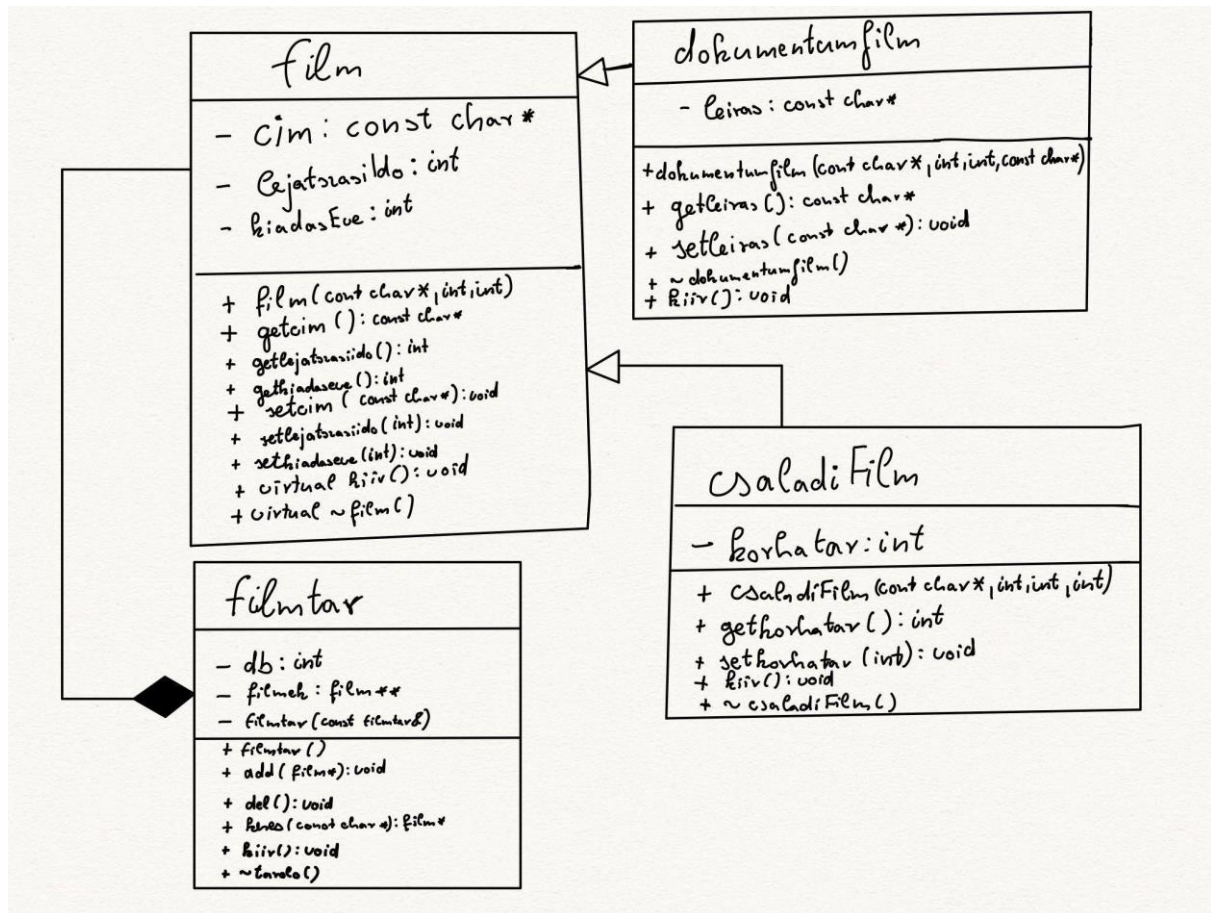 film
- cim: const char*
- lejatszasiIdo: int
- kiadasEve: int
+ film(cont char*, int, int)
+ getcim(): const char*
+ getlejatszasiido(): int
+ getkiadaseve(): int
+ setcim(const char*): void
+ setlejatszasiido(int): void
+ setkiadaseve(int): void
+ virtual kiir(): void
+ virtual ~film()
dokumentumfilm
- leiras: const char*
+ dokumentumfilm(cont char*, int, int, const char*)
+ getleiras(): const char*
+ setleiras(const char*): void
+ ~dokumentumfilm()
+ kiir(): void
csaladiFilm
- korhatar: int
+ csaladiFilm(cont char*, int, int, int)
+ getkorhatar(): int
+ setkorhatar(int): void
+ kiir(): void
+ ~csaladiFilm()
filmtar
- db: int
- filmek: film**
- filmtar(const filmtar&)
+ filmtar()
+ add(film*): void
+ del(): void
+ keres(const char*): film*
+ kiir(): void
+ ~tarolo()